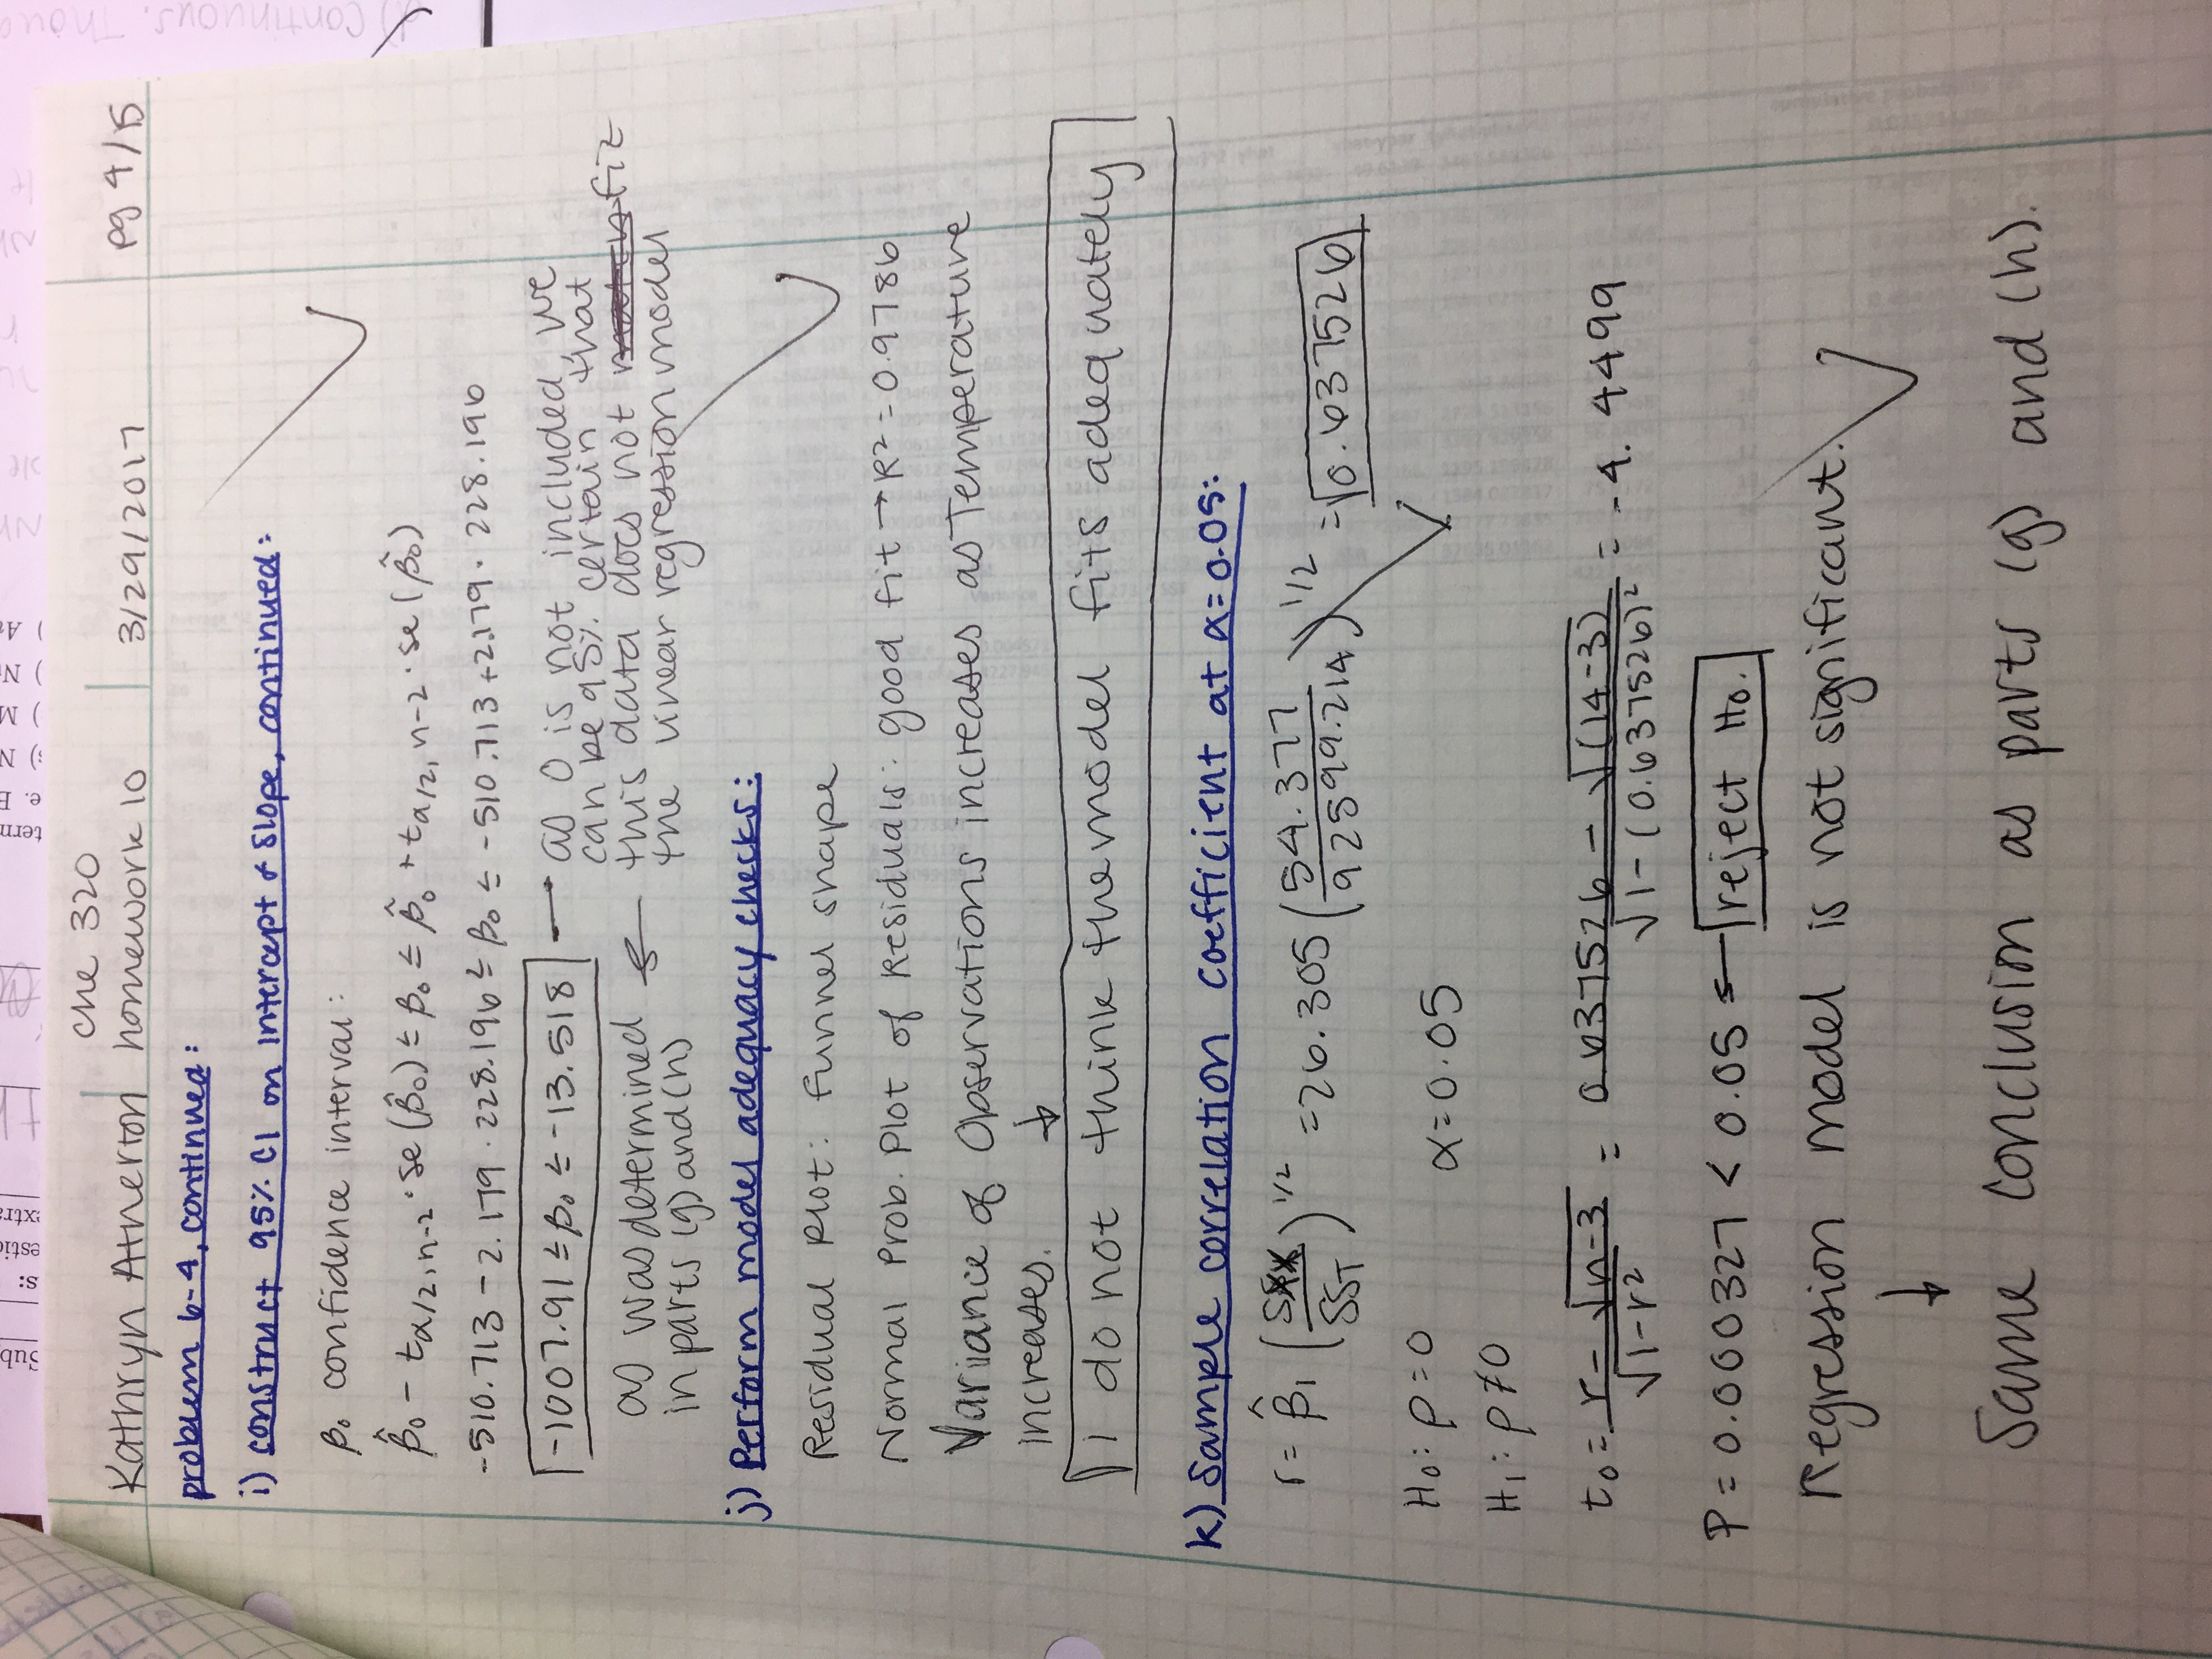 Sub
s:
estic
extra
term
e. E
) N
) M
) N
) A
che 320
Kathryn Atherton homework 10 3/29/2017 pg 4/15
problem 6-4, continued:
i) construct 95% CI on intercept & slope, continued:
β₀ confidence interval:
β̂₀ - t_α/2, n-2 · se(β̂₀) ≤ β₀ ≤ β̂₀ + t_α/2, n-2 · se(β̂₀)
-510.713 - 2.179 · 228.196 ≤ β₀ ≤ -510.713 + 2.179 · 228.196
-1007.91 ≤ β₀ ≤ -13.518 → as 0 is not included, we
can be 95% certain that
this data does not fit
the linear regression model
← as was determined
in parts (g) and (h)
j) Perform model adequacy checks:
Residual Plot: funnel shape
Normal Prob. Plot of Residuals: good fit → R² = 0.9786
Variance of Observations increases as Temperature
increases. ↓
I do not think the model fits adequately
k) Sample correlation coefficient at α=0.05:
r = β̂₁ (Sxx/SST)^1/2 = 26.305 (54.377/92599.214)^1/2 = 0.637526
H₀: ρ = 0 α = 0.05
H₁: ρ ≠ 0
t₀ = r - √n-3 / √1-r² = 0.637526 - √(14-3) / √1-(0.637526)² = -4.4499
P = 0.000327 < 0.05 ← reject H₀.
Regression model is not significant.
↓
Same conclusion as parts (g) and (h).
Continuous. Thou